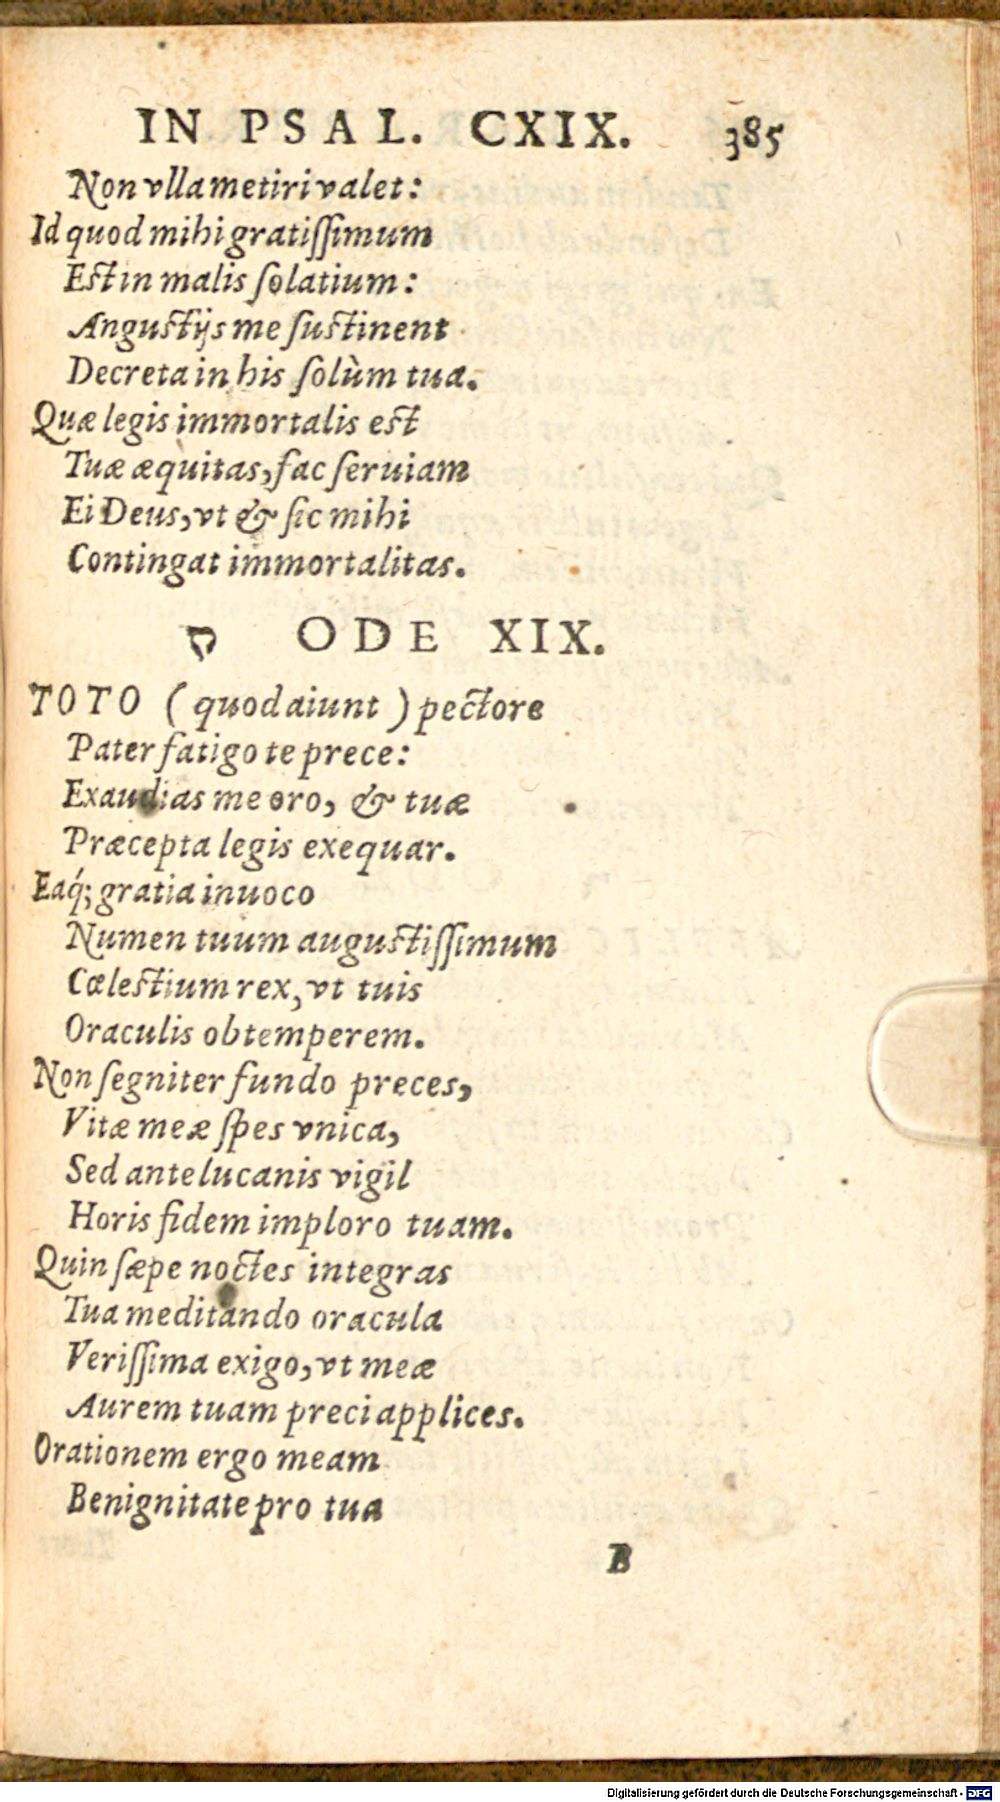 IN PSAL. CXIX. 385
Non vlla metiri valet:
Id quod mihi gratiſſimum
Eſt in malis ſolatium:
Anguſtijs me ſuſtinent
Decreta in his ſolùm tua.
Quæ legis immortalis eſt
Tuæ æquitas, fac ſeruiam
Ei Deus, vt & ſic mihi
Contingat immortalitas.
ק ODE XIX.
TOTO (quod aiunt) pectore
Pater fatigo te prece:
Exaudias me oro, & tuæ
Præcepta legis exequar.
Eaq́; gratia inuoco
Numen tuum auguſtiſſimum
Cœleſtium rex, vt tuis
Oraculis obtemperem.
Non ſegniter fundo preces,
Vitæ meæ ſpes vnica,
Sed antelucanis vigil
Horis fidem imploro tuam.
Quin ſæpe noctes integras
Tua meditando oracula
Veriſſima exigo, vt meæ
Aurem tuam preci applices.
Orationem ergo meam
Benignitate pro tua
B
Digitalisierung gefördert durch die Deutsche Forschungsgemeinschaft - DFG